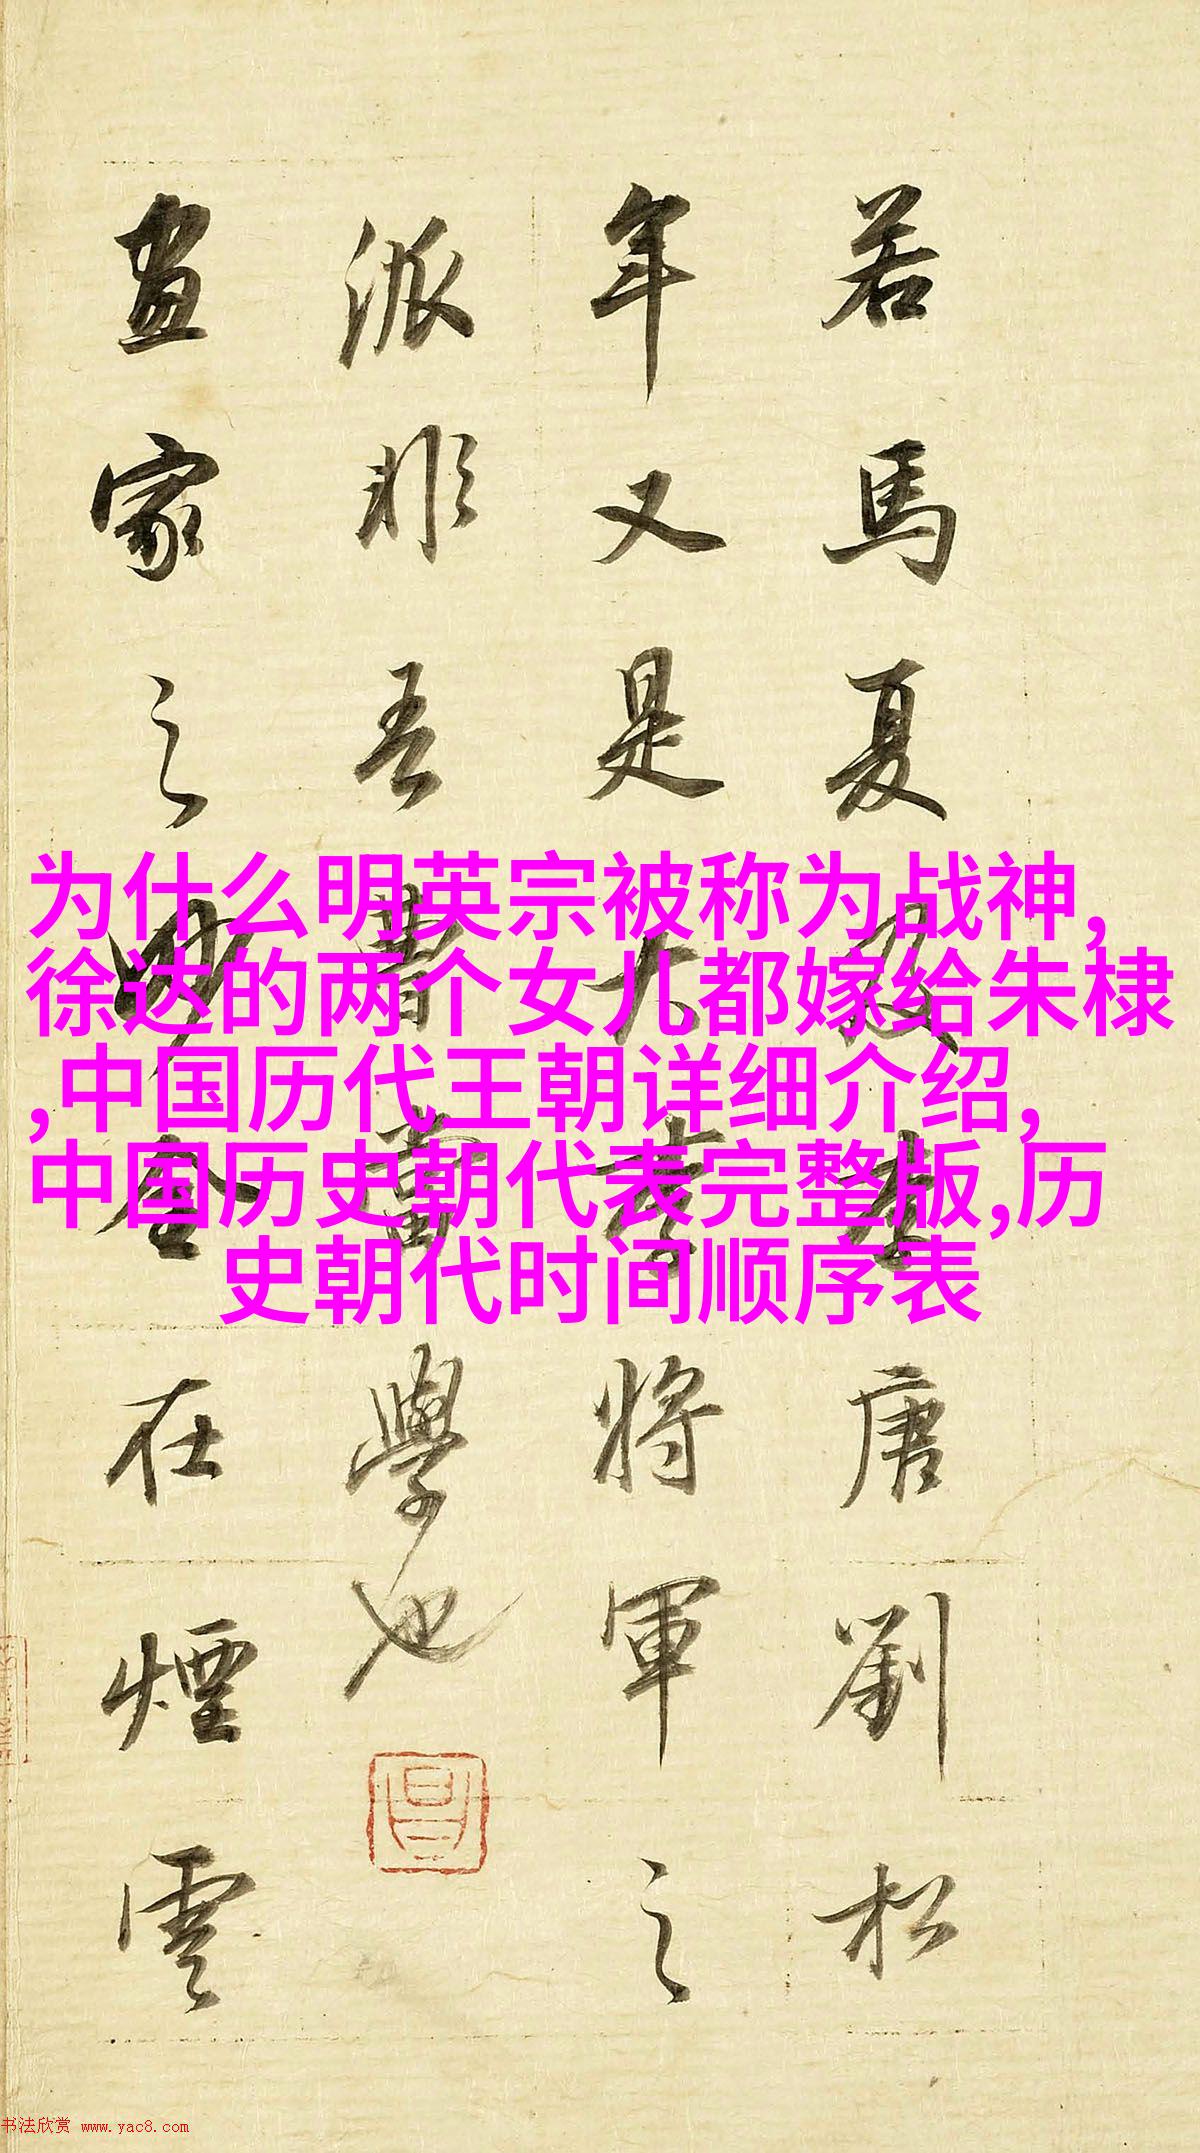 若馬夏及李唐劉松
年又是大李將軍之
派非吾曹當學也
畫家之妙全在煙雲
为什么明英宗被称为战神,
徐达的两个女儿都嫁给朱棣
,中国历代王朝详细介绍,
中国历史朝代表完整版,历
史朝代时间顺序表
书法欣赏 www.yac8.com